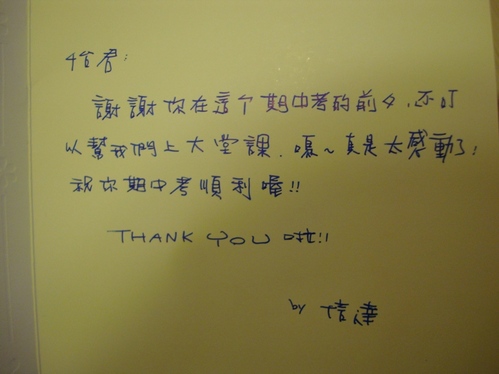 君：
謝謝你在這个期中考的前夕，还可
以幫我們上大堂課，嗄～真是太感動了；
祝你期中考順利喔!!
THANK YOU 啦!!
by 信達